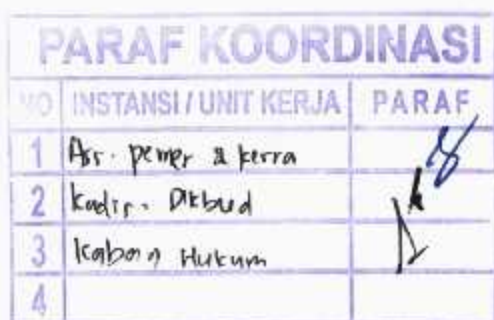 PARAF KOORDINASI
NO INSTANSI / UNIT KERJA PARAF
1 Ass. pemer & kesra
2 Kadis. Dikbud
3 Kabag Hukum
4